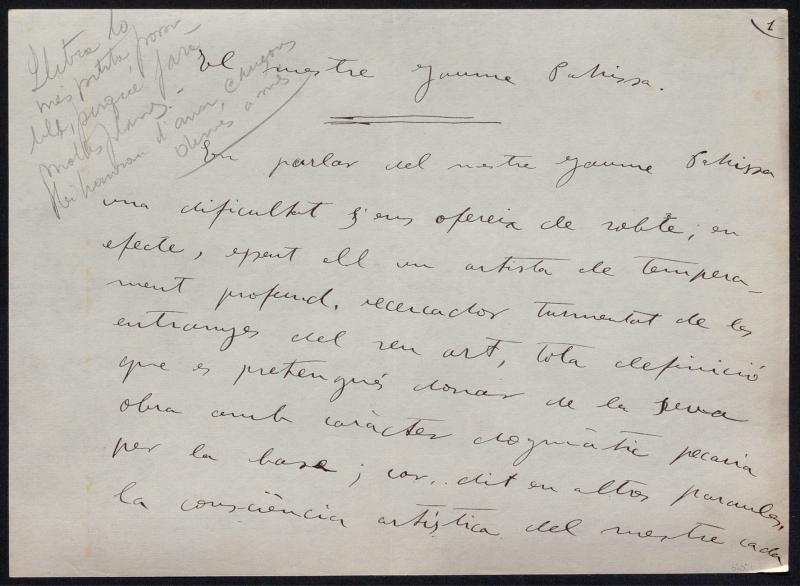 1
Lletra lo
més petita possi
ble, perquè farà
moltes planes.-
hi hauran d'anar, cançons
demés a més
El mestre Jaume Pahissa.
En parlar del mestre Jaume Pahissa
una dificultat s'ens ofereix de sobte; en
efecte, essent ell un artista de tempera-
ment profund, recercador turmentat de les
entranyes del seu art, tota definició
que es pretengués donar de la seva
obra amb caràcter dogmàtic pecaria
per la base; car, dit en altres paraules,
la consciència artística del mestre cada